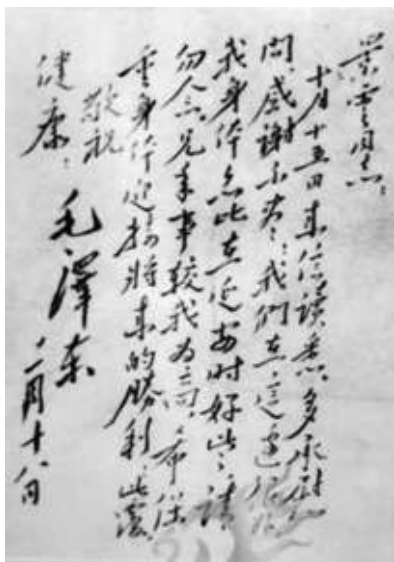 雲同志：
十月十五日来信读悉，多承慰
問，感谢不尽。我們在這邊很好，
我身体亦比在延安时好些，请
勿念。兄年事较我为高，希保
重身体迎接將来的勝利。此復
敬祝
健康！
毛澤东
月十八日